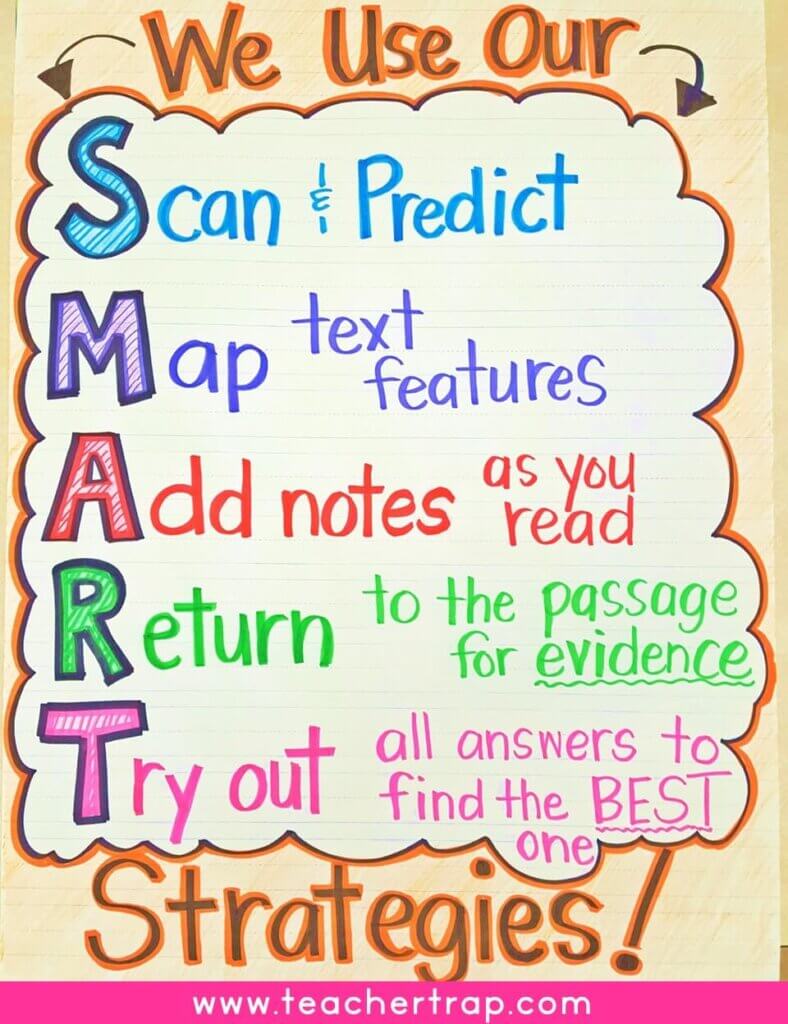 We Use Our
Scan & Predict
Map text features
Add notes as you read
Return to the passage for evidence
Try out all answers to find the BEST one
Strategies!
www.teachertrap.com